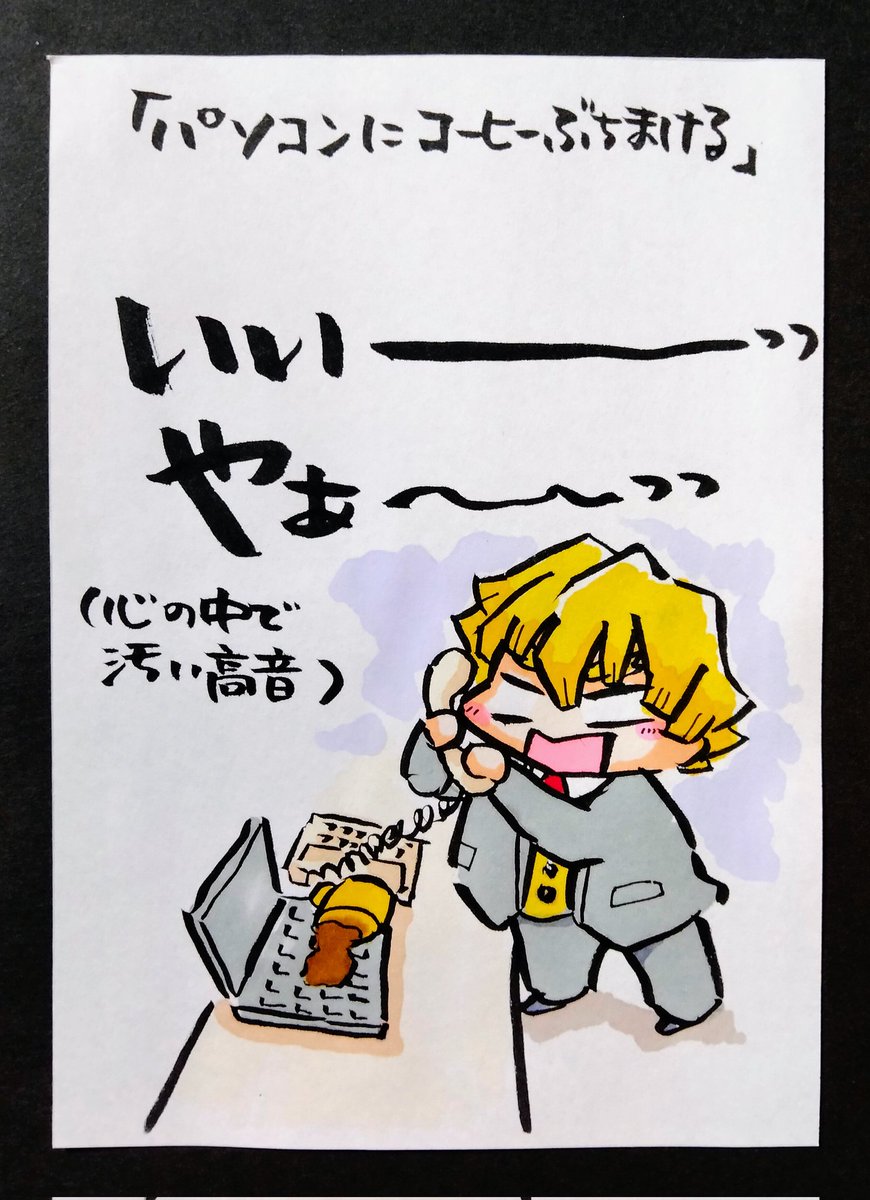 「パソコンにコーヒーぶちまける」
いいーーっっ
やぁ〜〜っっ
(心の中で
汚い高音)